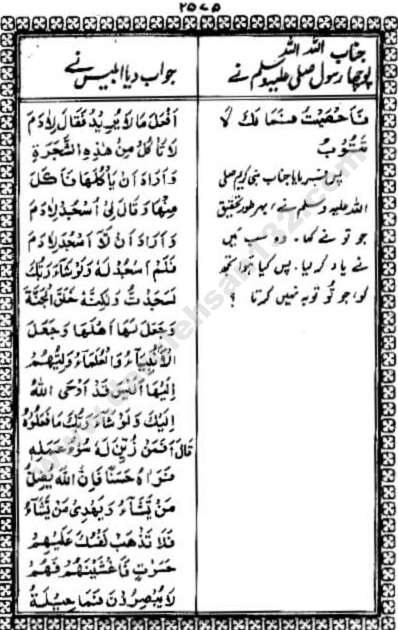 ۲۵۷۵
جناب اللہ اللہ
پوچھا رسول صلی علیہ وسلم نے
فَاحْصَيْتُ فَمَا لَكَ لَا
تَتُوْبُ
پس فرمایا جناب نبی کریم صلی
اللہ علیہ وسلم نے، بہر طور تحقیق
جو تو نے کہا۔ وہ سب میں
نے یاد کر لیا۔ پس کیا ہوا تجھ
کو، جو تُو توبہ نہیں کرتا ؟
جواب دیا ابلیس نے
اَفْعَلُ مَا لَا يُرِيْدُ فَقَالَ لِاٰدَمَ
لَا تَاْكُلْ مِنْ هٰذِهِ الشَّجَرَةِ
وَاَرَادَ اَنْ يَاْكُلَهَا فَاَكَلَ
مِنْهَا وَقَالَ لِيْ اَسْجُدْ لِاٰدَمَ
وَاَرَادَ اَنْ لَا اَسْجُدَ لِاٰدَمَ
فَلَمْ اَسْجُدْ لَهٗ وَلَوْ شَآءَ رَبُّكَ
لَسَجَدْتُ وَلٰكِنَّهٗ خَلَقَ الْجَنَّةَ
وَجَعَلَ لَهَا اَهْلَهَا وَجَعَلَ
الْاَنْبِيَآءَ وَالْعُلَمَآءَ
اِلَيْهَا اَلَيْسَ قَدْ اَوْحَى اللهُ
اِلَيْكَ وَلَوْ شَآءَ رَبُّكَ مَا فَعَلُوْهُ
قَالَ اَفَمَنْ زُيِّنَ لَهٗ سُوْٓءُ عَمَلِهٖ
فَرَاٰهُ حَسَنًا فَاِنَّ اللهَ يُضِلُّ
مَنْ يَّشَآءُ وَيَهْدِيْ مَنْ يَّشَآءُ
فَلَا تَذْهَبْ نَفْسُكَ عَلَيْهِمْ
حَسَرٰتٍ فَاَغْشَيْنٰهُمْ فَهُمْ
لَا يُبْصِرُوْنَ فَمَا حِيْلَةُ